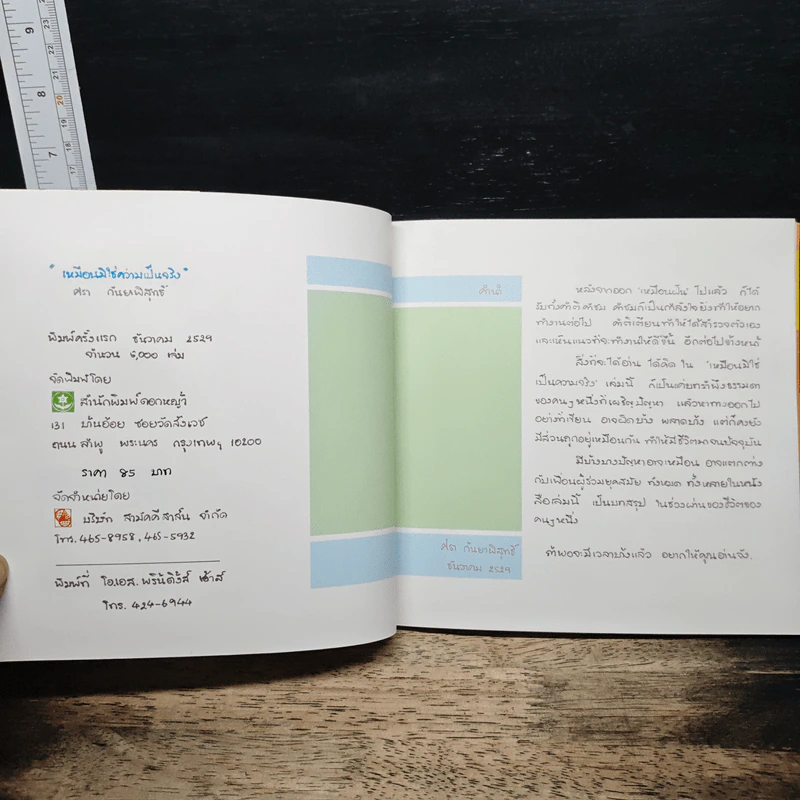 9
8
7
23
22
21
20
19
18
17
"เหมือนมิใช่ความเป็นจริง"
ศรา กันยาพิสุทธิ์
พิมพ์ครั้งแรก ธันวาคม 2529
จำนวน 5,000 เล่ม
จัดพิมพ์โดย
สำนักพิมพ์ดอกหญ้า
131 บ้านอ้อย ซอยวัดสังเวช
ถนน ลำพู พระนคร กรุงเทพฯ 10200
ราคา 85 บาท
จัดจำหน่ายโดย
บริษัท สามัคคีสาส์น จำกัด
โทร. 465-8958, 465-5932
พิมพ์ที่ โอ.เอส. พริ้นติ้งส์ เฮ้าส์
โทร. 424-6944
คำนำ
ศรา กันยาพิสุทธิ์
ธันวาคม 2529
หลังจากออก 'เหมือนฝัน' ไปแล้ว ก็ได้
รับทั้งคำติ คำชม คำชมก็เป็นกำลังใจ ยิ่งทำให้อยาก
ทำงานต่อไป คำติเตียนทำให้ได้สำรวจตัวเอง
และเห็นแนวที่จะทำงานให้ดีขึ้น อีกต่อไปข้างหน้า
สิ่งที่จะได้อ่าน ได้คิด ใน 'เหมือนมิใช่
เป็นความจริง' เล่มนี้ ก็เป็นแต่บทรำพึงธรรมดา
ของคนๆหนึ่งที่เผชิญปัญหา แล้วหาทางออกไป
อย่างที่เขียน อาจผิดบ้าง พลาดบ้าง แต่ก็คงยัง
มีส่วนถูกอยู่เหมือนกัน ทำให้มีชีวิตมาจนปัจจุบัน
มีบ้างบางปัญหาอาจเหมือน อาจแตกต่าง
กับเพื่อนผู้ร่วมยุคสมัย ทั้งหมด ทั้งหลายในหนัง
สือเล่มนี้ เป็นบทสรุป ในช่วงผ่านของชีวิตของ
คนๆหนึ่ง
ถ้าพอจะมีเวลาบ้างแล้ว อยากให้คุณอ่านจัง.